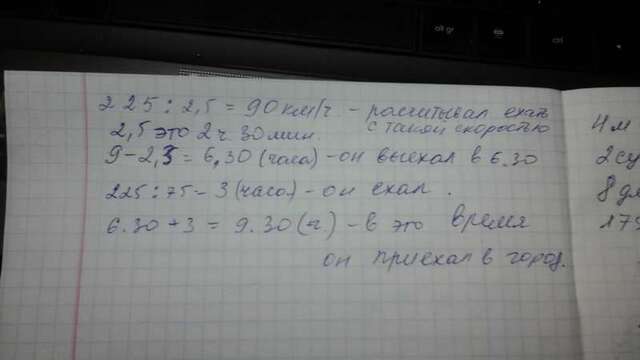 225 : 2,5 = 90 км/ч - расчитывал ехать
с такой скоростью
2,5 это 2 ч. 30 мин.
9 - 2,5 = 6,30 (часа) - он выехал в 6.30
225 : 75 = 3 (часа) - он ехал.
6.30 + 3 = 9.30 (ч.) - в это время
он приехал в город.
4 м
2 су
8 дл
175